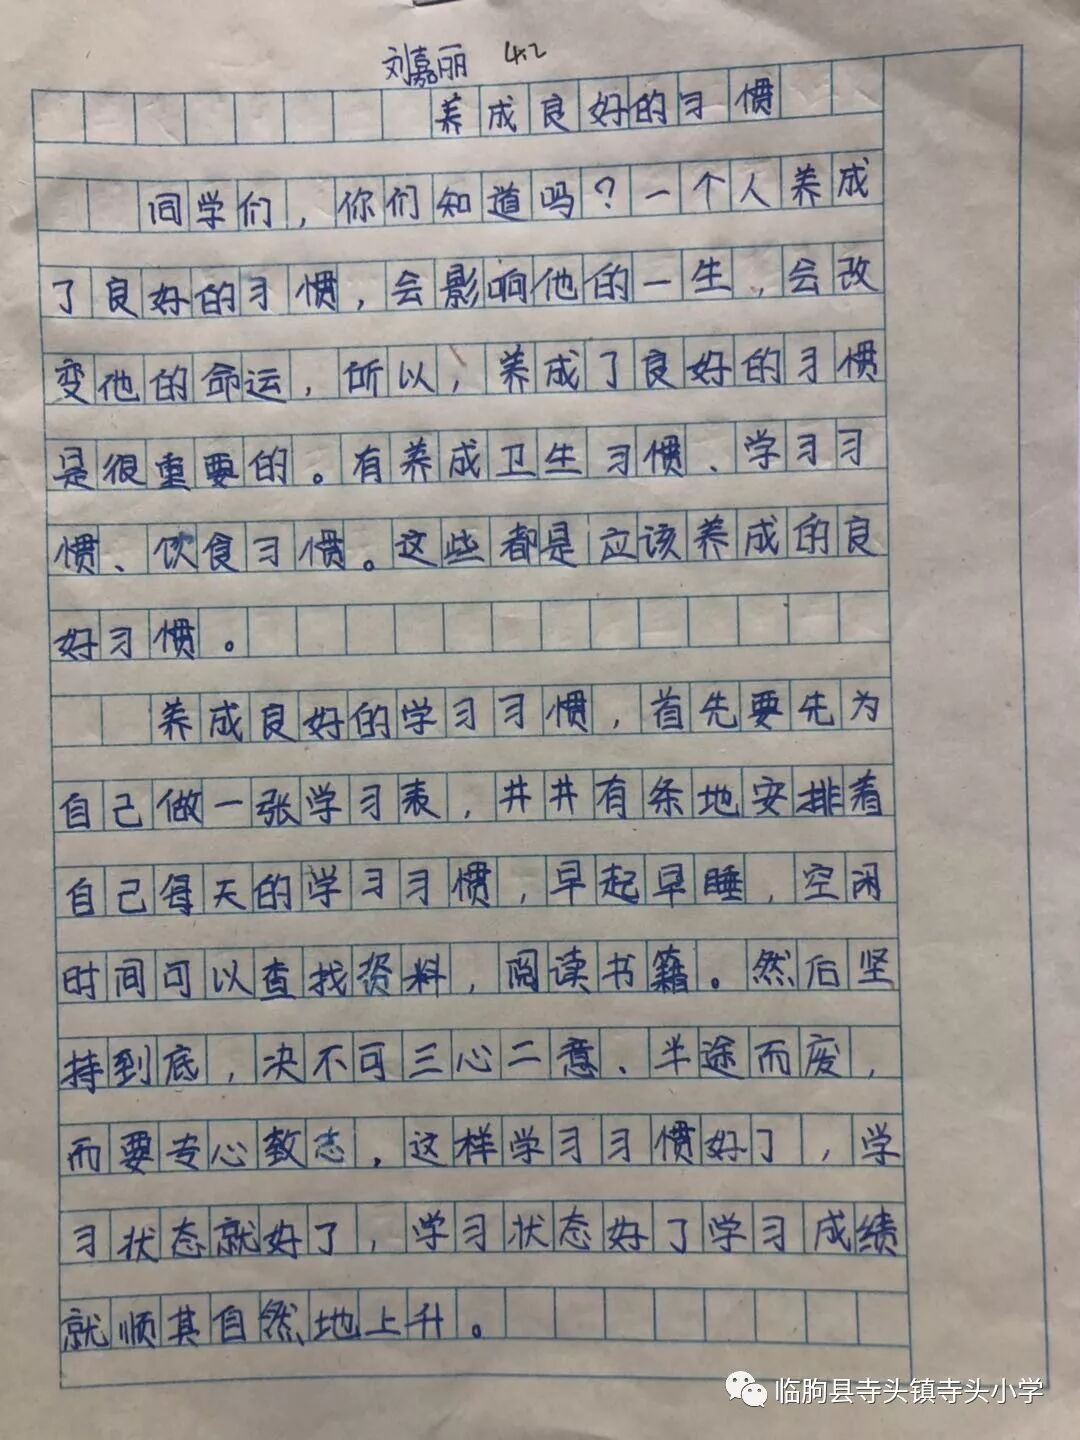 刘嘉丽 4.2
养成良好的习惯
同学们，你们知道吗？一个人养成
了良好的习惯，会影响他的一生，会改
变他的命运，所以，养成了良好的习惯
是很重要的。有养成卫生习惯、学习习
惯、饮食习惯。这些都是应该养成的良
好习惯。
养成良好的学习习惯，首先要先为
自己做一张学习表，井井有条地安排着
自己每天的学习习惯，早起早睡，空闲
时间可以查找资料，阅读书籍。然后坚
持到底，决不可三心二意、半途而废，
而要专心致志，这样学习习惯好了，学
习状态就好了，学习状态好了学习成绩
就顺其自然地上升。
临朐县寺头镇寺头小学